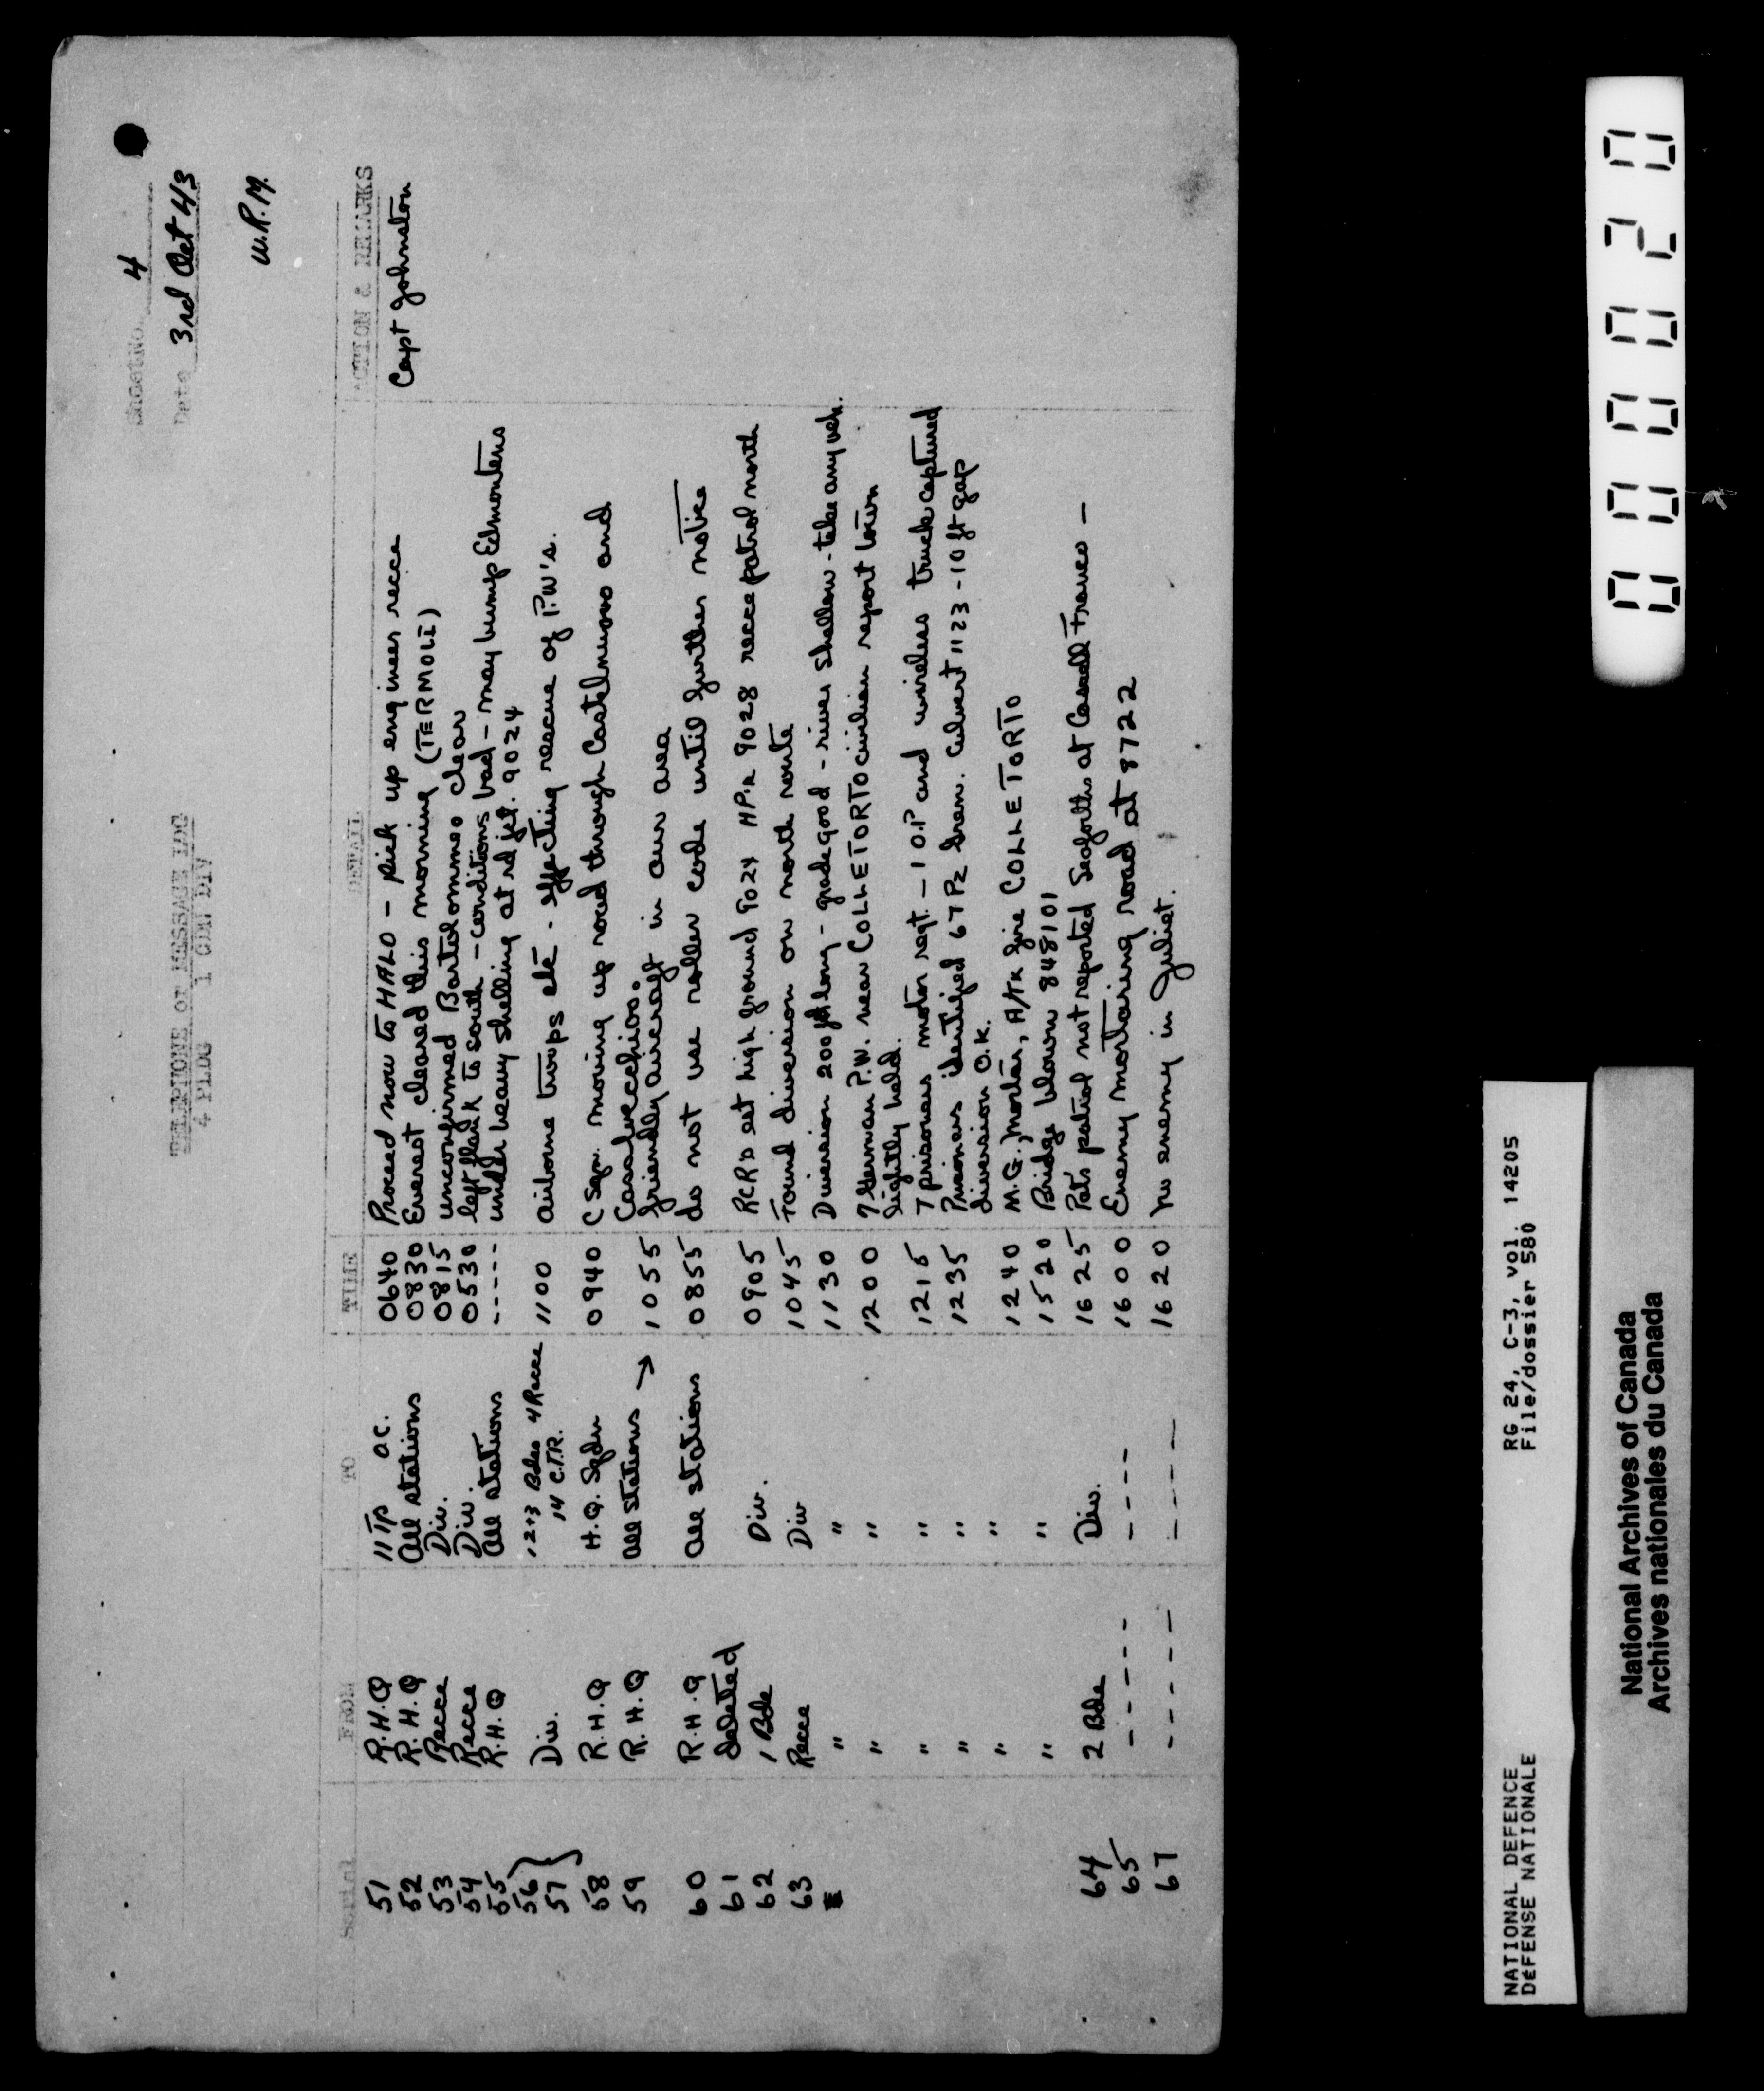 Sheet No. 4
Date 3rd Oct 43
W.R.M.
TELEPHONE OR MESSAGE LOG
4 PLDG 1 CDN DIV
Serial FROM TO TIME DETAIL ACTION & REMARKS
51 R.H.Q 11 Tp O.C. 0640 Proceed now to HALO - pick up engineer recce Capt Johnston
52 R.H.Q All stations 0830 Everest cleared this morning (TERMOLI)
53 Recce Div. 0815 unconfirmed clear
54 Recce Div. 0530 left flank to south - conditions bad - may bump Edmontons
55 R.H.Q All stations ----- under heavy shelling at rd jct. 9024
56 } 1 2+3 Bdes 4 Recce
57 Div. 14 C.T.R. 1100 airborne troops etc - effecting rescue of P.W's.
58 R.H.Q H.Q. Sqdn 0940 C Sqn. moving up road through Castelnuovo and
Casalvecchio.
59 R.H.Q All stations → 1055 friendly aircraft in our area
60 R.H.Q All stations 0855 do not use roller code until further notice
61 deleted
62 1 Bde Div. 0905 RCR's at high ground 9024 9028 recce patrol north
63 Recce Div 1045 Found diversion on north route
" " 1130 Diversion 200 yd long - grade good - river shallow - take any veh.
" " 1200 7 German P.W. near COLLETORTO civilian report town
lightly held.
" " 1215 7 prisoners motor regt. - 1 O.P and wireless truck captured
" " 1235 Prisoners identified 67 Pz Gren. Culvert 1123 - 10 ft gap
diversion O.K.
" " 1240 M.G., Mortar, A/Tk fire COLLETORTO
" " 1520 Bridge blown 848101
64 2 Bde Div. 1625 Pat's patrol not reported Seaforths at Franco -
65 ----- ---- 1600 Enemy mortaring road at 8722
67 ----- ---- 1620 No enemy in Juliet.
00 00 20
NATIONAL DEFENCE RG 24, C-3, vol. 14205
DÉFENSE NATIONALE File/dossier 580
National Archives of Canada
Archives nationales du Canada